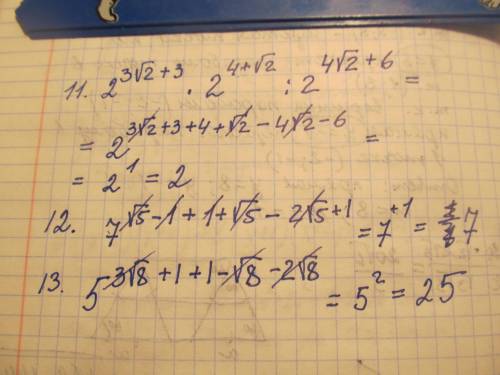 11. 2^{3√2+3} · 2^{4+√2} : 2^{4√2+6} =
= 2^{3√2+3+4+√2-4√2-6} =
= 2^1 = 2
12. 7^{√5-1+1+√5-2√5+1} = 7^{+1} = 7
13. 5^{3√8+1+1-√8-2√8} = 5^2 = 25